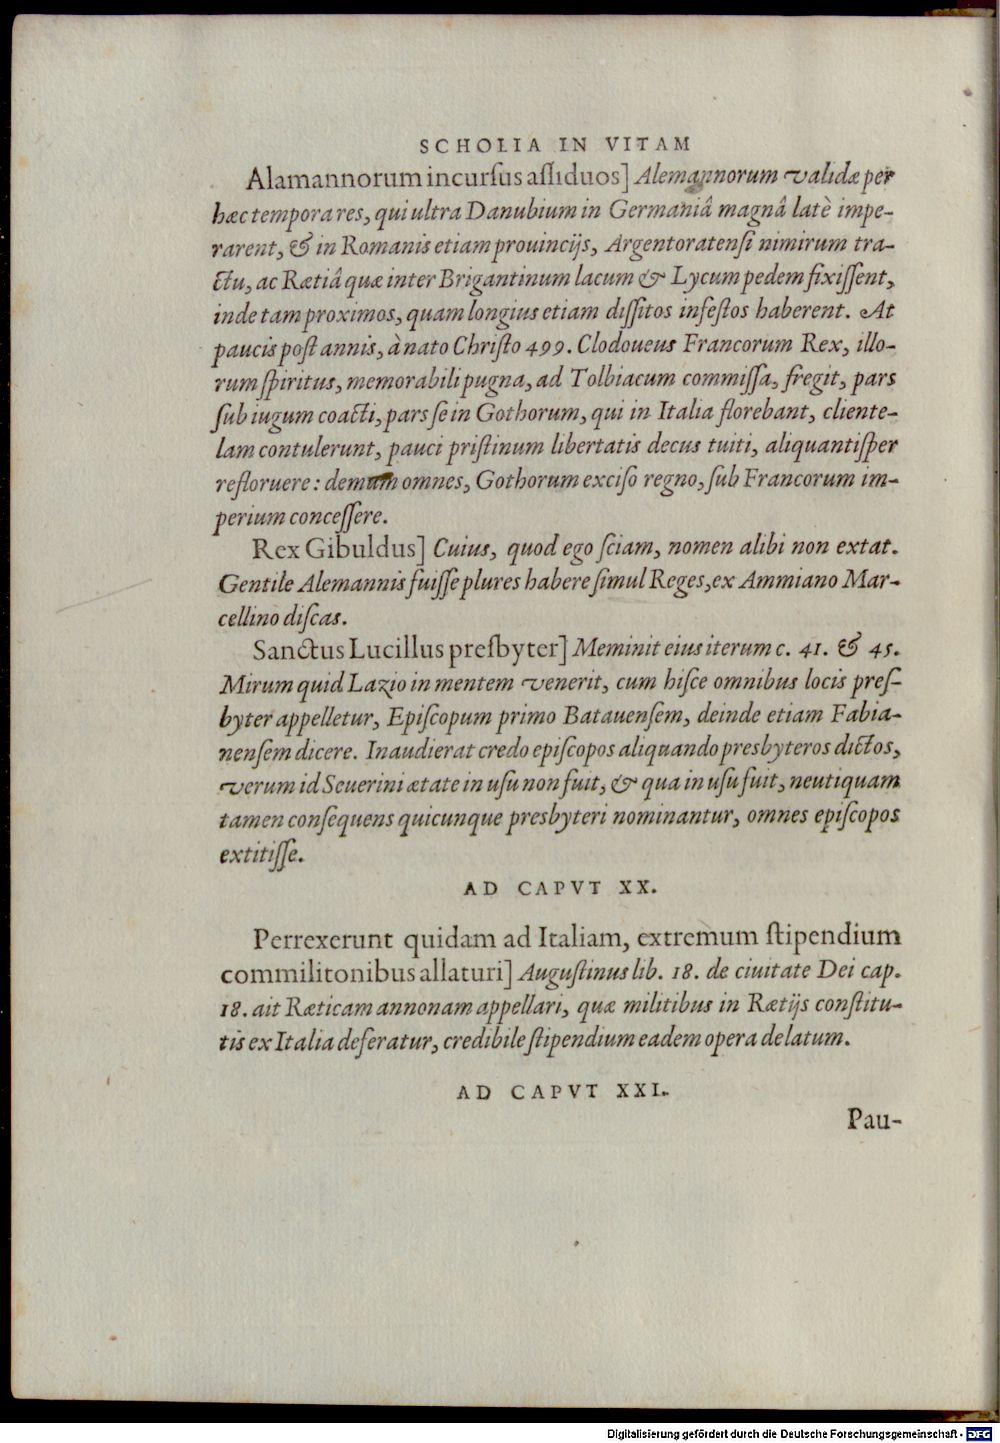 SCHOLIA IN VITAM
Alamannorum incurſus aſſiduos] Alemannorum validæ per
hæc tempora res, qui ultra Danubium in Germaniâ magnâ latè impe-
rarent, & in Romanis etiam prouincijs, Argentoratenſi nimirum tra-
ctu, ac Rætiâ quæ inter Brigantinum lacum & Lycum pedem fixiſſent,
inde tam proximos, quam longius etiam diſſitos infeſtos haberent. At
paucis poſt annis, à nato Chriſto 499. Clodoueus Francorum Rex, illo-
rum ſpiritus, memorabili pugna, ad Tolbiacum commiſſa, fregit, pars
ſub iugum coacti, pars ſe in Gothorum, qui in Italia florebant, cliente-
lam contulerunt, pauci priſtinum libertatis decus tuiti, aliquantiſper
refloruere: demum omnes, Gothorum exciſo regno, ſub Francorum im-
perium conceſſere.
Rex Gibuldus] Cuius, quod ego ſciam, nomen alibi non extat.
Gentile Alemannis fuiſſe plures habere ſimul Reges, ex Ammiano Mar-
cellino diſcas.
Sanctus Lucillus preſbyter] Meminit eius iterum c. 41. & 45.
Mirum quid Lazio in mentem venerit, cum hiſce omnibus locis preſ-
byter appelletur, Epiſcopum primo Batauenſem, deinde etiam Fabia-
nenſem dicere. Inaudierat credo epiſcopos aliquando presbyteros dictos,
verum id Seuerini ætate in uſu non fuit, & qua in uſu fuit, neutiquam
tamen conſequens quicunque presbyteri nominantur, omnes epiſcopos
extitiſſe.
AD CAPVT XX.
Perrexerunt quidam ad Italiam, extremum ſtipendium
commilitonibus allaturi] Auguſtinus lib. 18. de ciuitate Dei cap.
18. ait Ræticam annonam appellari, quæ militibus in Rætijs conſtitu-
tis ex Italia deferatur, credibile ſtipendium eadem opera delatum.
AD CAPVT XXI.
Pau-
Digitalisierung gefördert durch die Deutsche Forschungsgemeinschaft - DFG